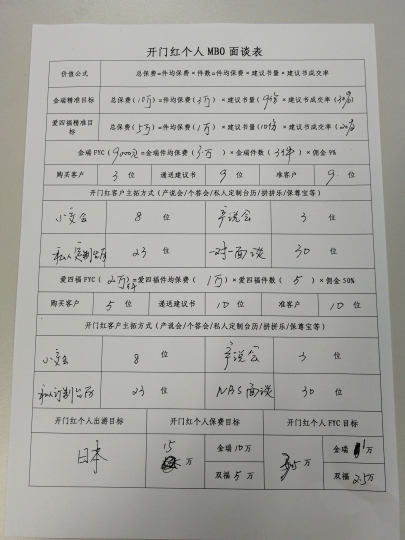 开门红个人 MBO 面谈表
价值公式 总保费=件均保费×件数=件均保费×建议书量×建议书成交率
金瑞精准目标 总保费(10万)=件均保费(3万)×建议书量(9份)×建议书成交率(30%)
爱四福精准目标 总保费(5万)=件均保费(1万)×建议书量(10份)×建议书成交率()
金瑞 FYC(9000元)=金瑞件均保费(3万)×金瑞件数(3件)×佣金 9%
购买客户 3 位 递送建议书 9 位 准客户 9 位
开门红客户主拓方式(产说会/个答会/私人定制台历/拼拼乐/保尊宝等)
小交会 8 位 产说会 3 位
私人定制台历 23 位 一对一面谈 30 位
爱四福 FYC(2万5千)=爱四福件均保费(1万)×爱四福件数(5)×佣金 50%
购买客户 5 位 递送建议书 10 位 准客户 10 位
开门红客户主拓方式(产说会/个答会/私人定制台历/拼拼乐/保尊宝等)
小交会 8 位 产说会 3 位
私人订制台历 23 位 NBS面谈 30 位
开门红个人出游目标 开门红个人保费目标 开门红个人 FYC 目标
日本 15 万 金瑞 10 万 3.5 万 金瑞 1 万
双福 5 万 双福 2.5 万